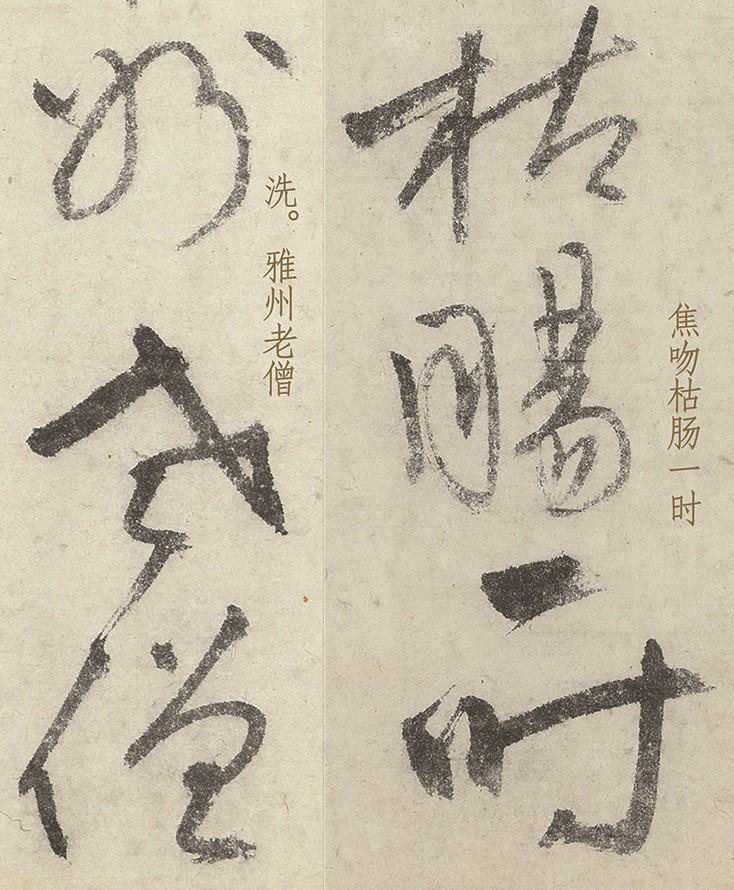 枯腸一时
焦吻枯肠一时
州老僧
洗。雅州老僧